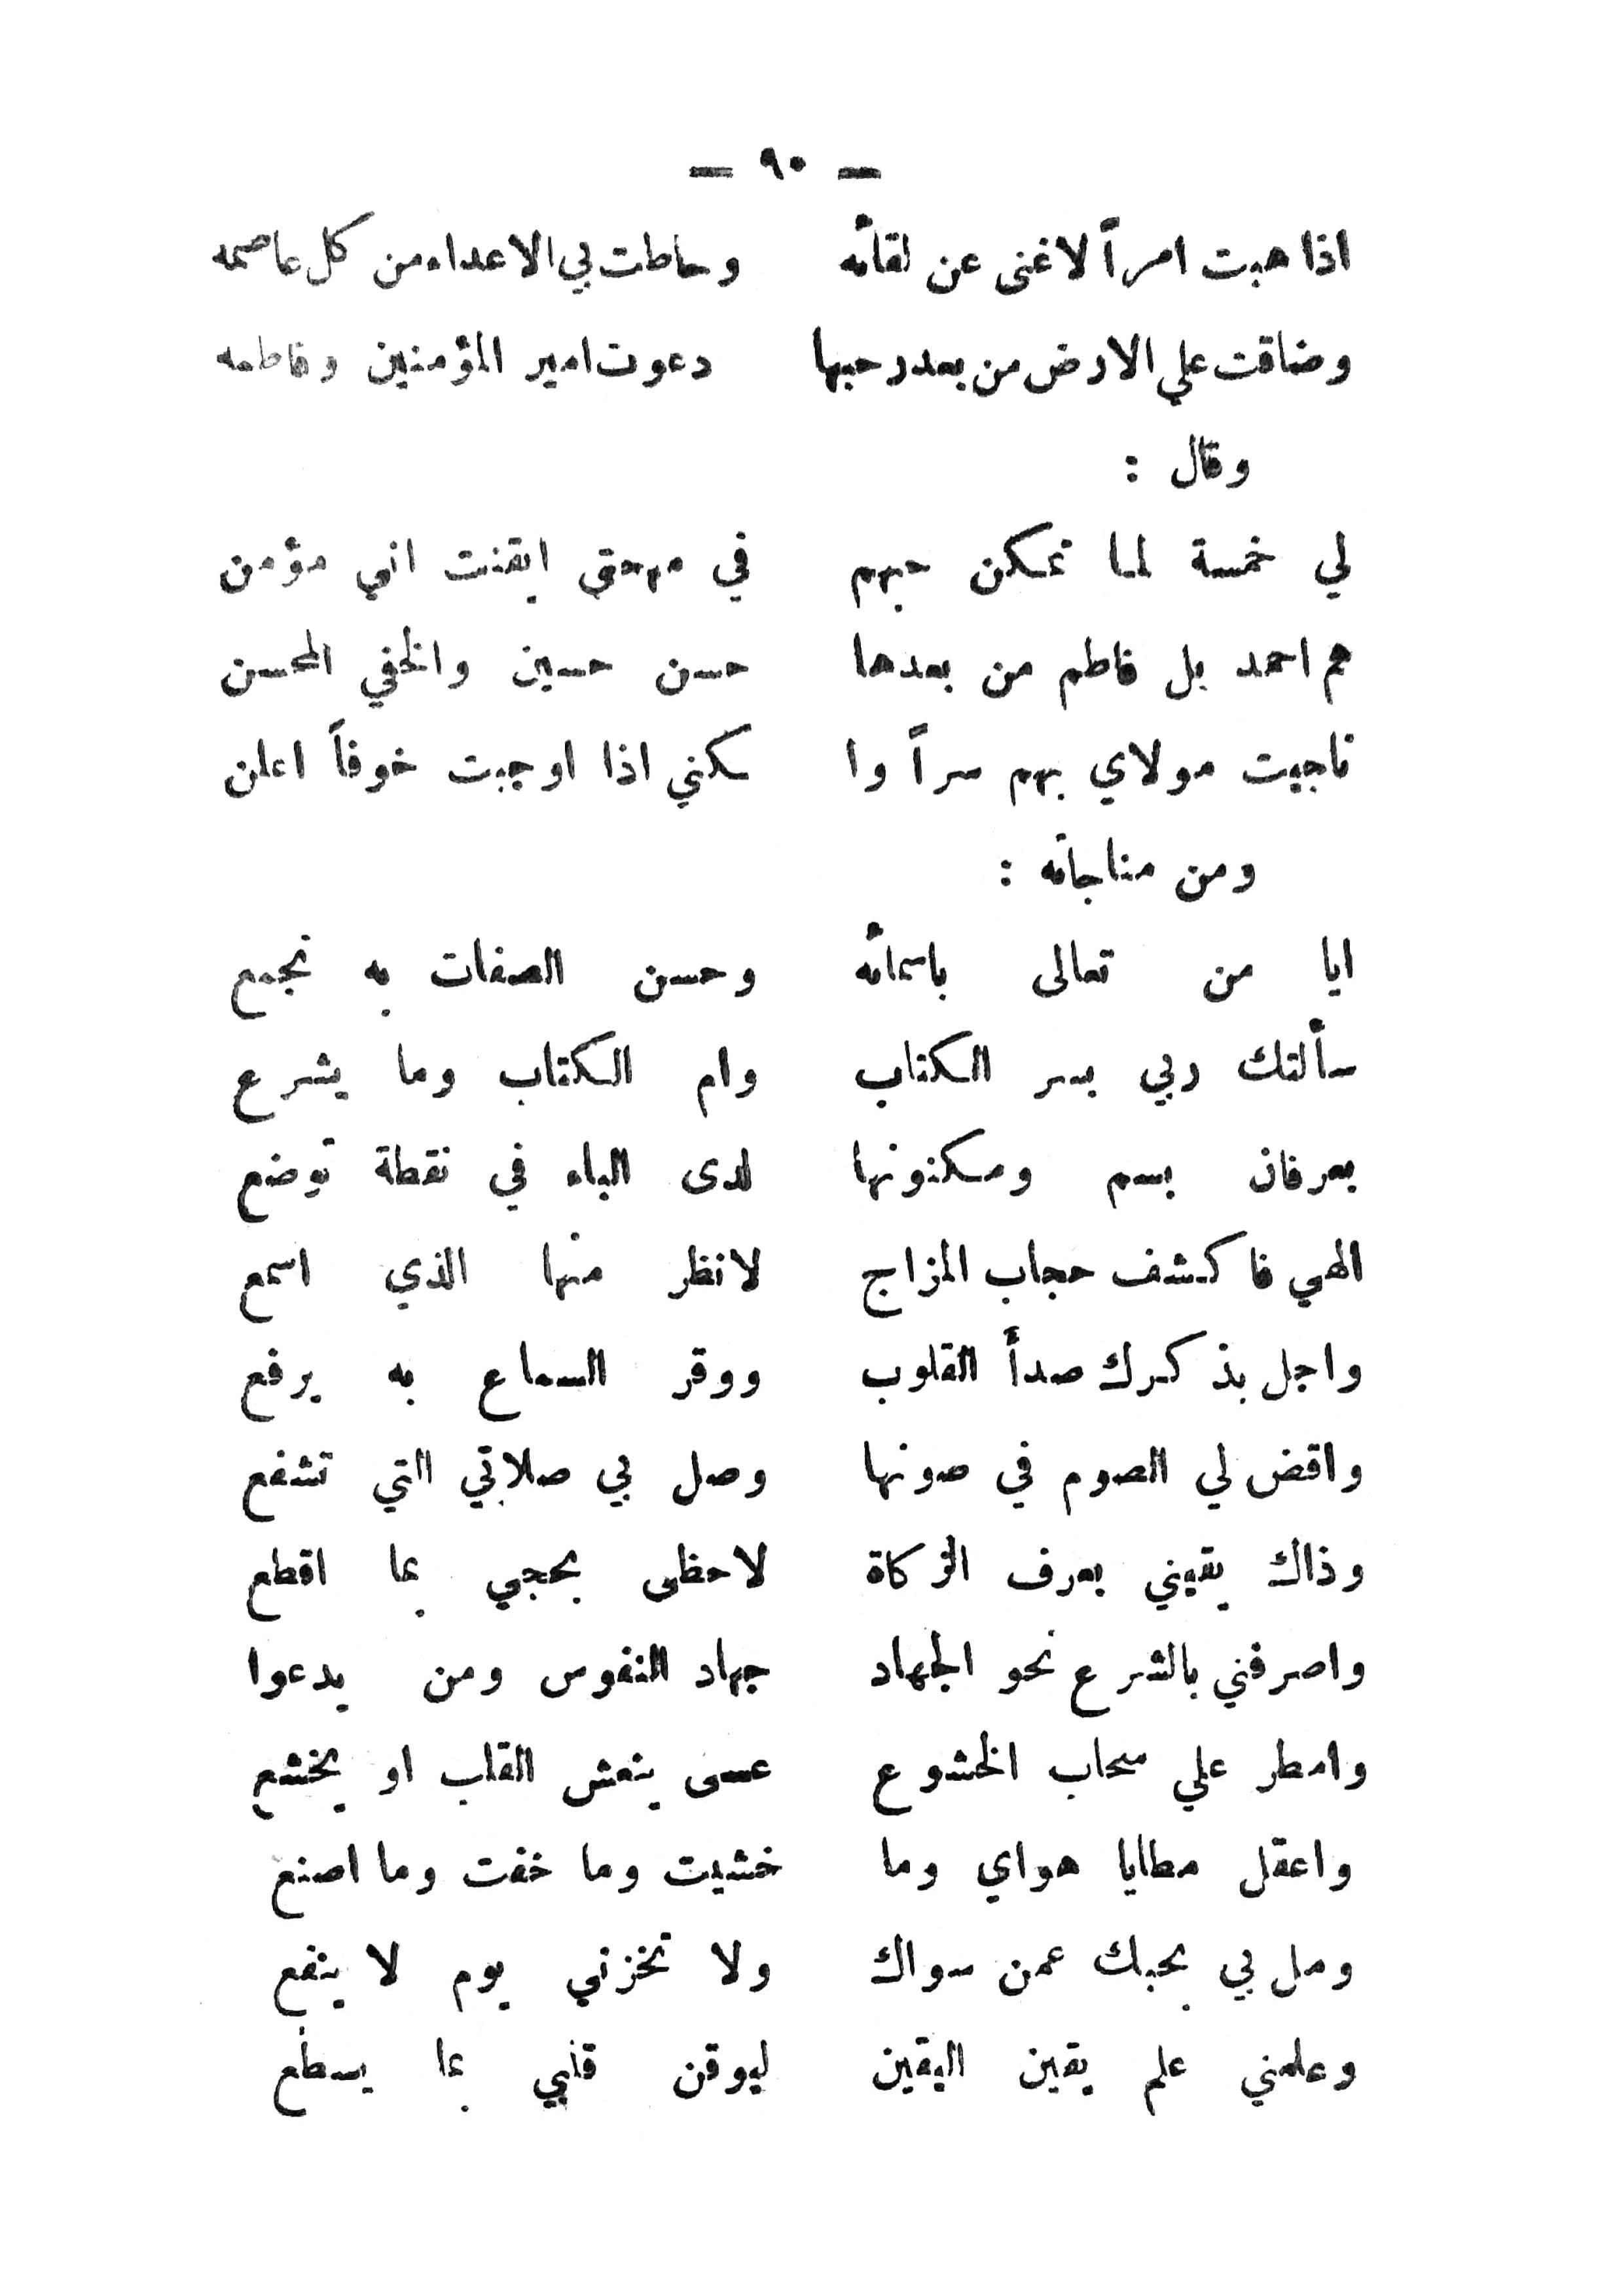 — ٩٠ —
اذا هبت امراً لاغنى عن لقائه وحاطت بي الاعداء من كل عاصمه
وضاقت علي الارض من بعد رحبها دعوت امير المؤمنين وفاطمه
وقال :
لي خمسة لما تمكن حبهم في مهجتي ايقنت اني مؤمن
هم احمد بل فاطم من بعدها حسن حسين والخفي المحسن
ناجيت مولاي بهم سراً وا سكني اذا اوجبت خوفاً اعلن
ومن مناجاته :
ايا من تعالى باسمائه وحسن الصفات به تجمع
سألتك ربي بسر الكتاب وام الكتاب وما يشرع
بعرفان بسم ومكنونها لدى الباء في نقطة توضع
الهي فاكشف حجاب المزاج لانظر منها الذي اسمع
واجل بذكرك صدأ القلوب ووقر السماع به يرفع
واقض لي الصوم في صونها وصل بي صلاتي التي تشفع
وذاك يقيني بعرف الزكاة لاحظى بحجي بما اقطع
واصرفني بالشرع نحو الجهاد جهاد النفوس ومن يدعوا
وامطر علي سحاب الخشوع عسى ينعش القلب او يخشع
واعقل مطايا هواي وما خشيت وما خفت وما اصنع
ومل بي بحبك عمن سواك ولا تخزني يوم لا ينفع
وعلمني علم يقين اليقين ليوقن قلبي بما يسطع